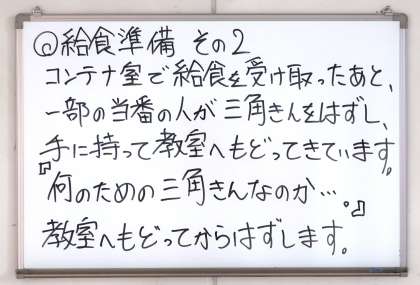 ◎給食準備 その2
コンテナ室で給食を受け取ったあと、
一部の当番の人が三角きんをはずし、
手に持って教室へもどってきています。
『何のための三角きんなのか…。』
教室へもどってからはずします。